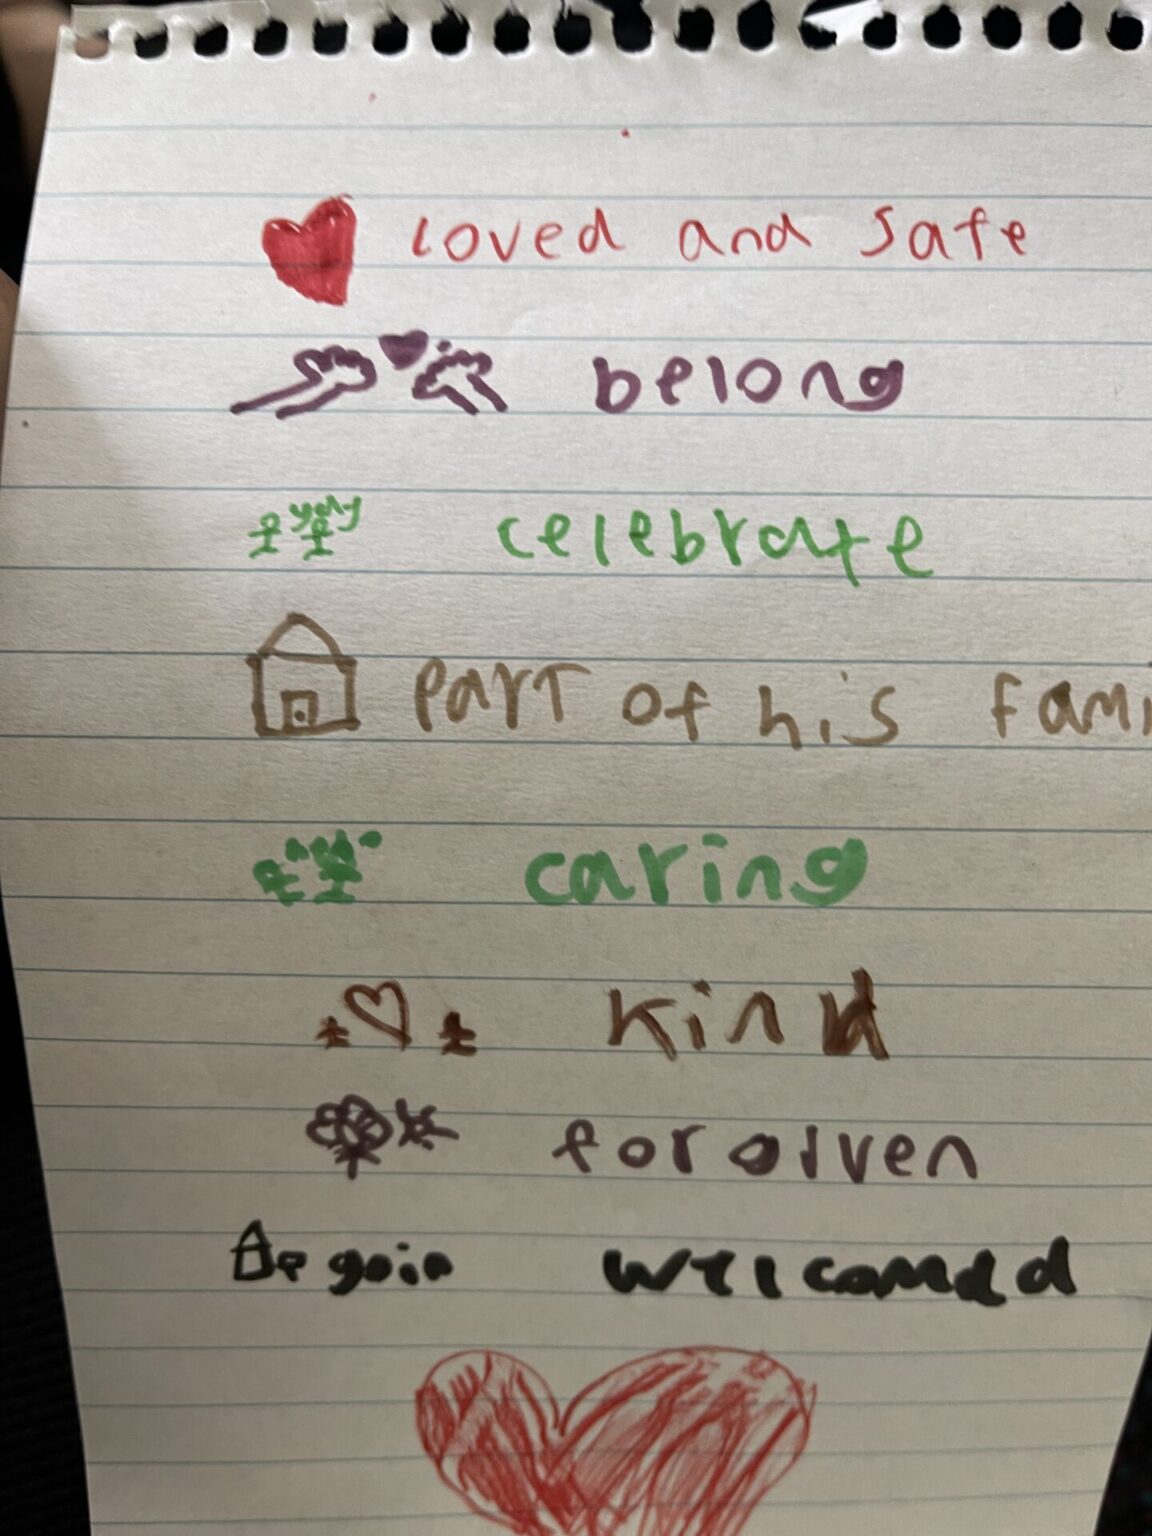 Loved and Safe
belong
yay celebrate
PART of his fami
caring
Kind
forgiven
welcomed